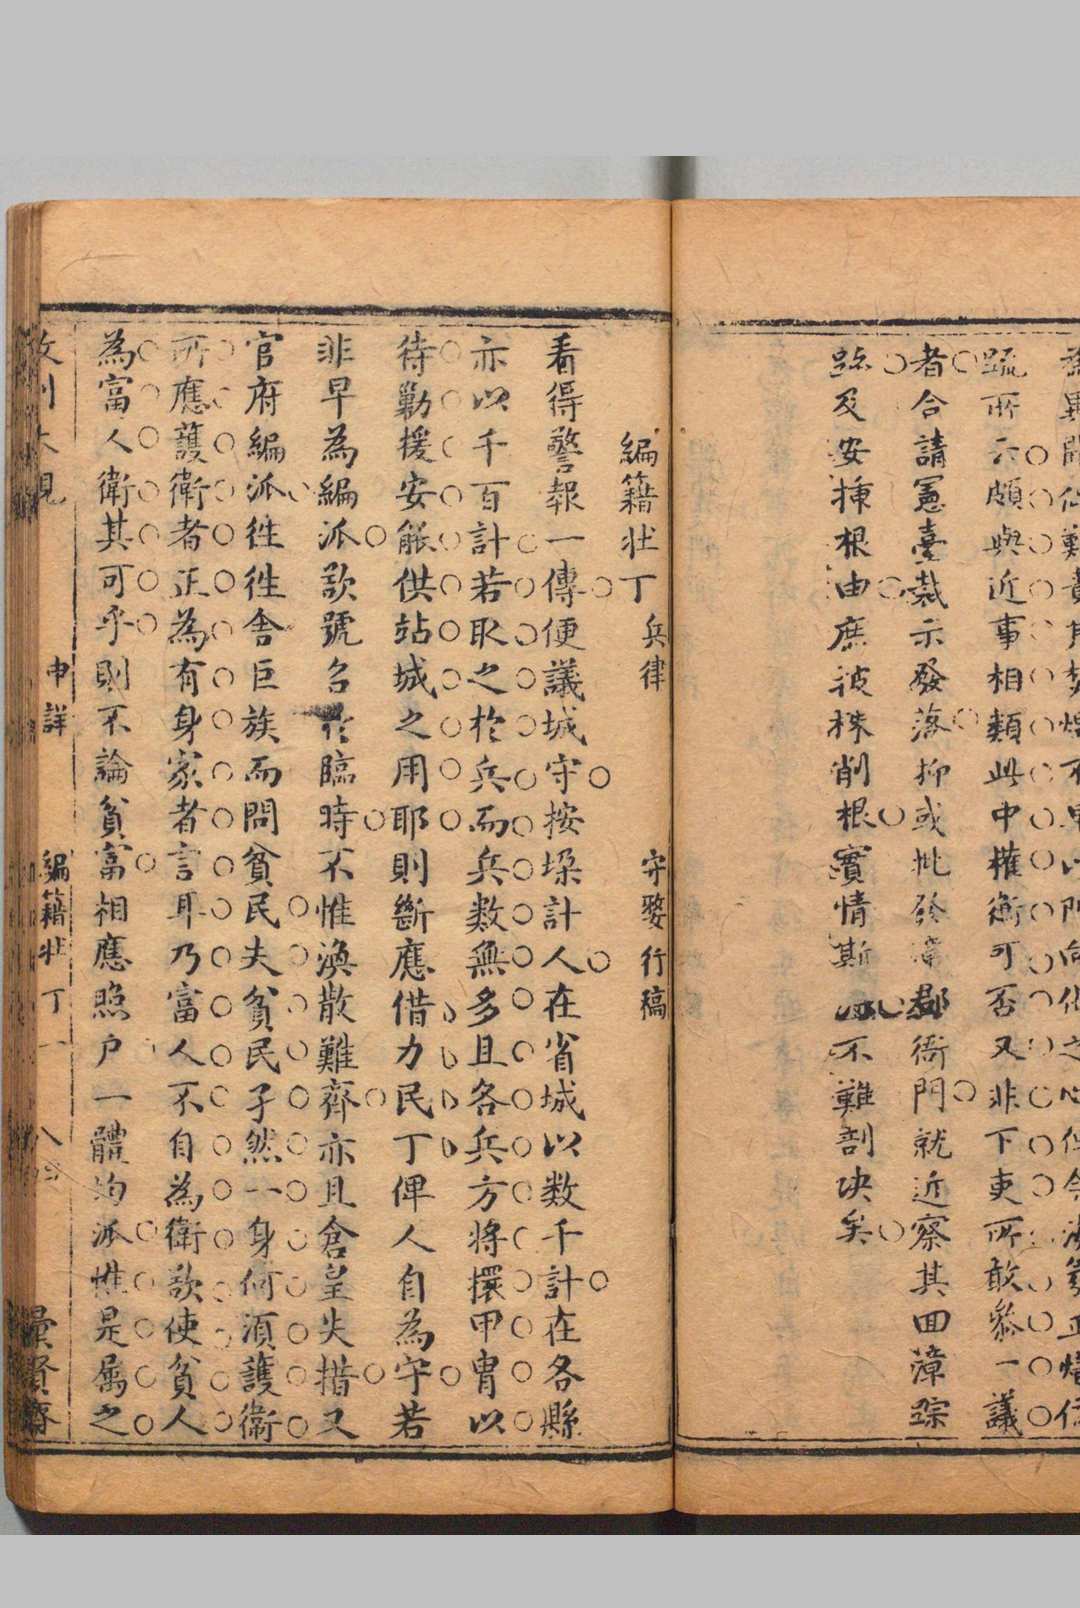 疏所云頗與近事相類此中權衡可否又非下吏所敢參一議
者合請憲臺裁示發落抑或批發漳郡衙門就近察其回漳踪
跡及安揷根由庶披株削根實情斯 不難剖决矣
編籍状丁 兵律 守婺行稿
看得警報一傳便議城守按垜計人在省城以数千計在各縣
亦以千百計若取之於兵而兵数無多且各兵方將擐甲胄以
待勦援安能供站城之用耶則斷應借力民丁俾人自為守若
非早為編派欲號召於臨時不惟渙散難齊亦且倉皇失措又
官府編派徃徃舎巨族而問貧民夫貧民孑然一身何須護衛
所應護衛者正為有身家者言耳乃富人不自為衛欲使貧人
為富人衛其可乎則不論貧富相應照户一體均派惟是属之
申詳 編籍状丁一